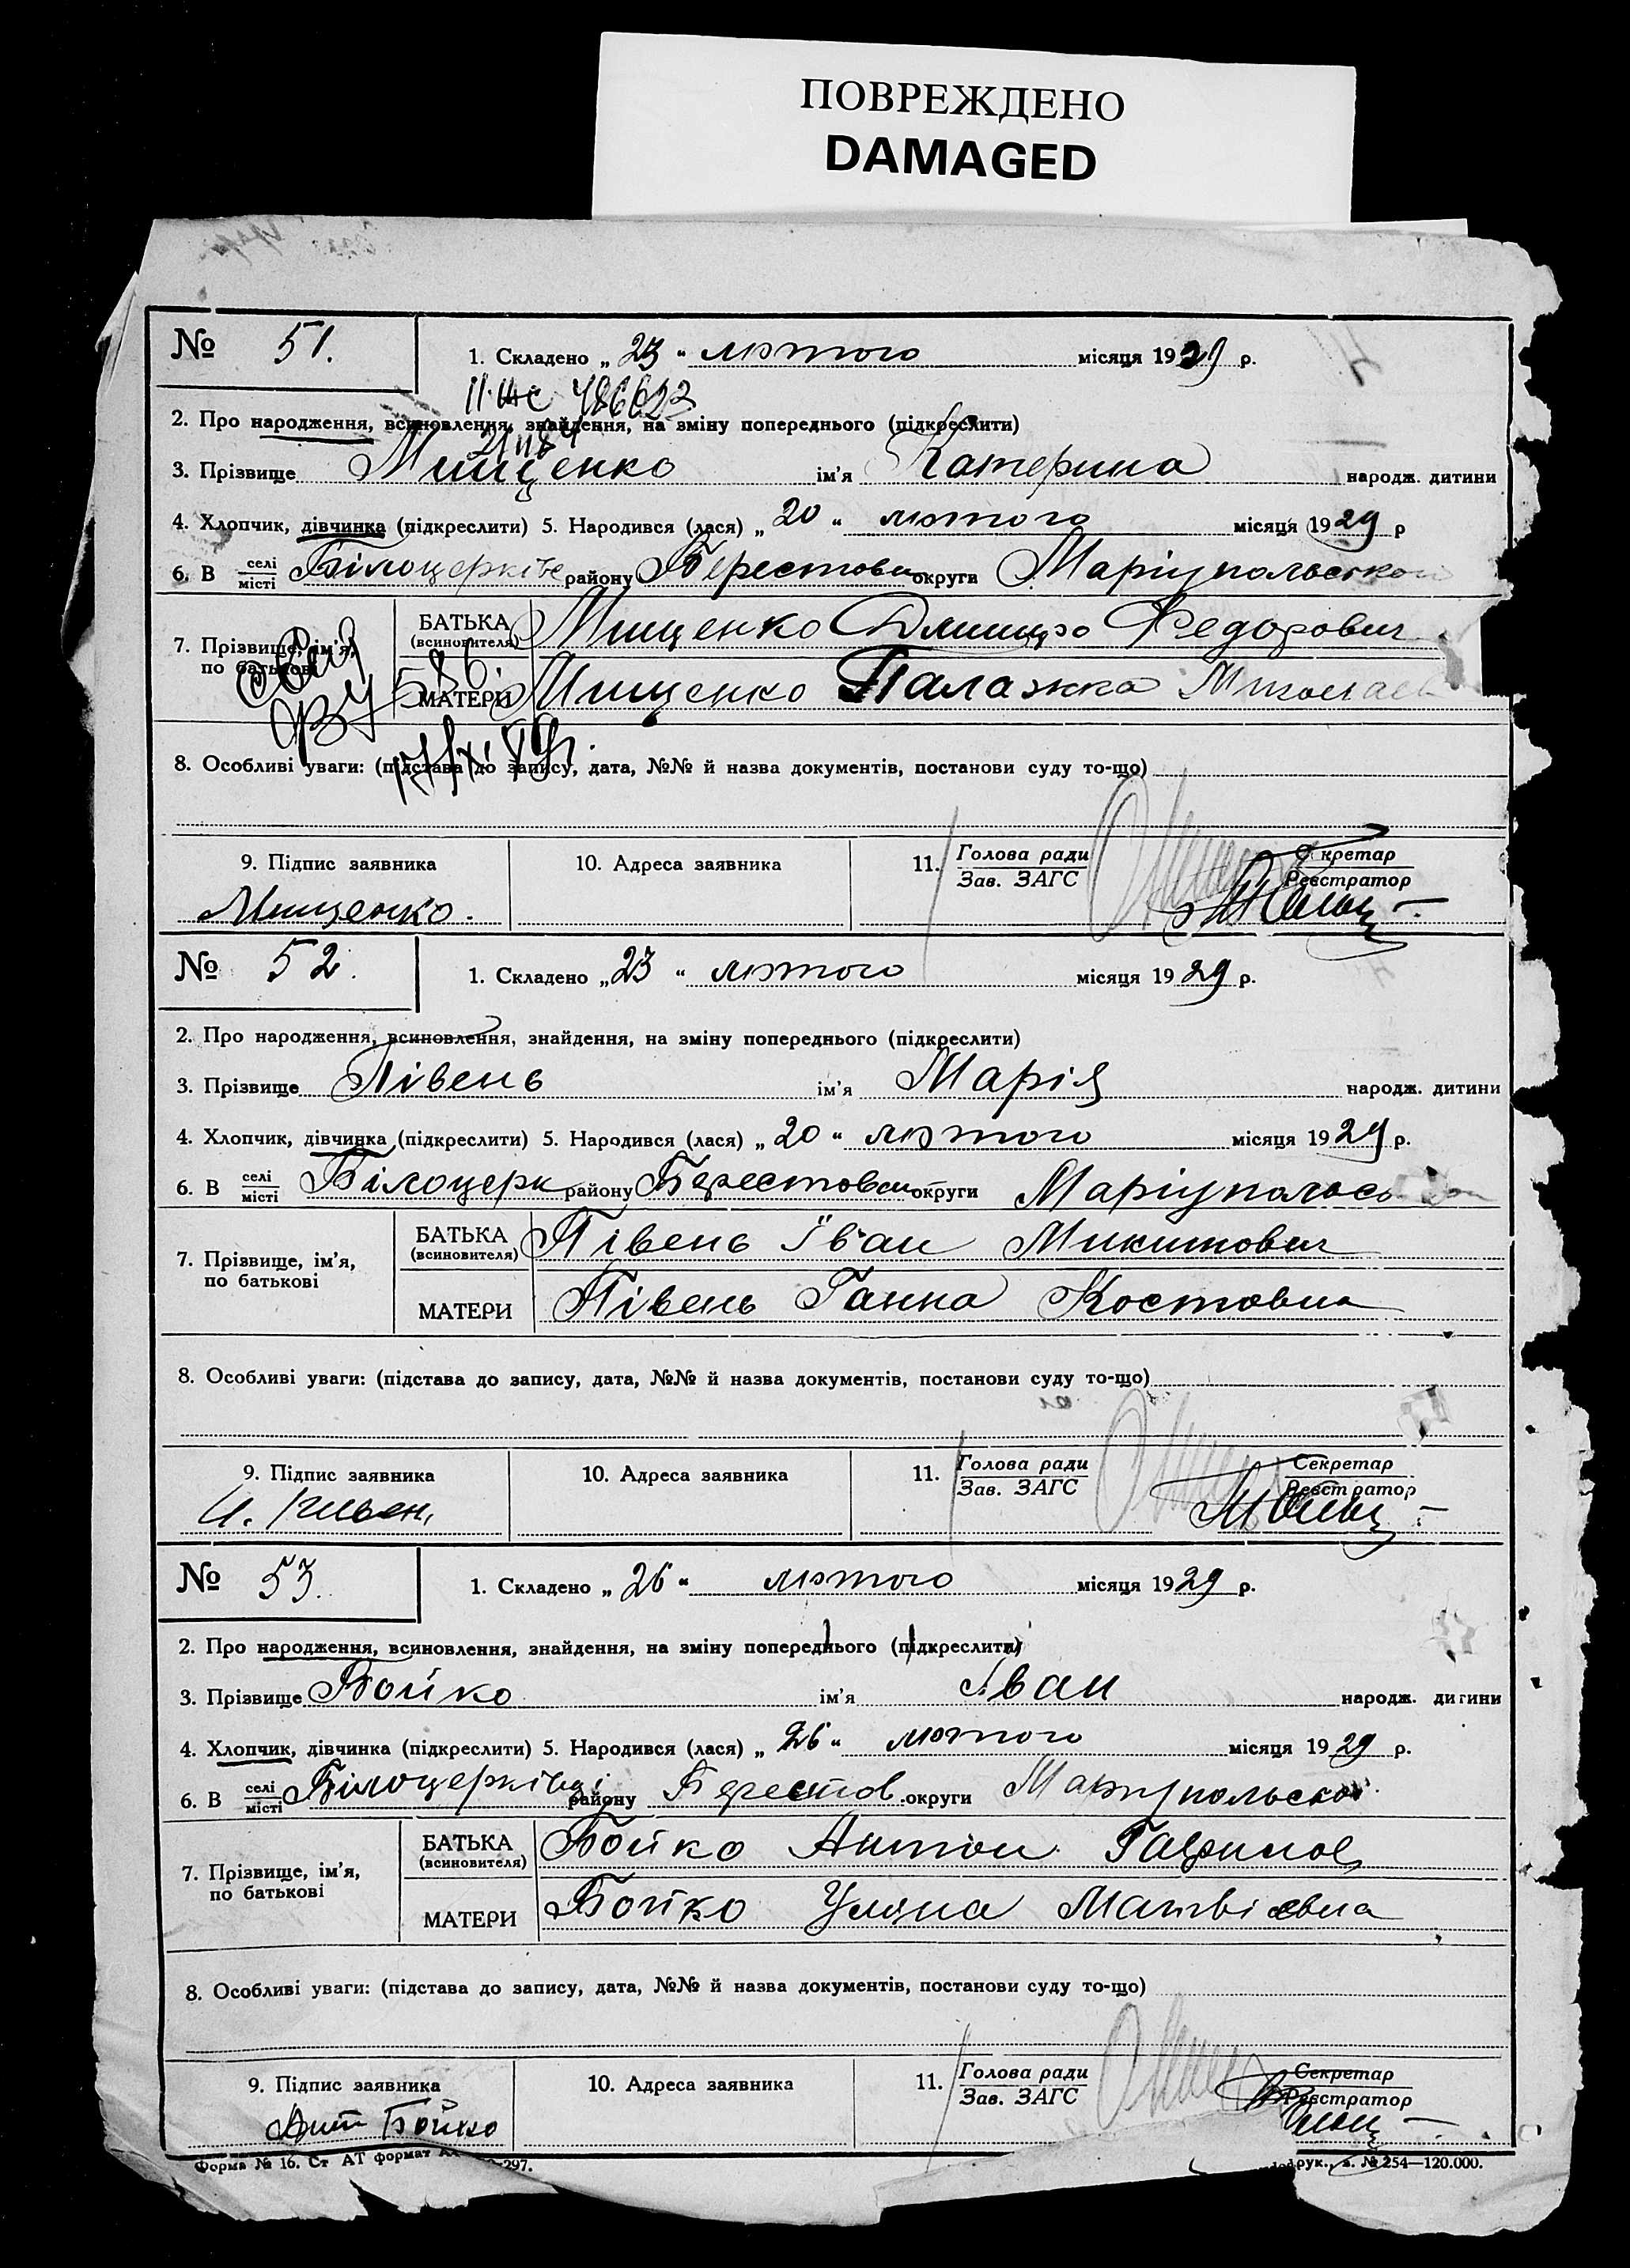 ПОВРЕЖДЕНО
DAMAGED
№ 51. 1. Складено „ 23 “ лютого місяця 1929 р.
486622
2. Про народження, всиновлення, знайдення, на зміну попереднього (підкреслити)
3. Прізвище Мищенко ім'я Катерина народж. дитини
4. Хлопчик, дівчинка (підкреслити) 5. Народився (лася) „ 20 “ лютого місяця 1929 р
6. В селі/місті Білоцерківе району Берестови округи Маріупольськои
7. Прізвище, ім'я, по батькові БАТЬКА (всиновителя) Мищенко Дмитро Федорович
МАТЕРИ Мищенко Палажка
8. Особливі уваги: (підстава до запису, дата, №№ й назва документів, постанови суду то-що)
9. Підпис заявника 10. Адреса заявника 11. Голова ради/Зав. ЗАГС Секретар/Реєстратор
Мищенко.
№ 52. 1. Складено „ 23 “ лютого місяця 1929 р.
2. Про народження, всиновлення, знайдення, на зміну попереднього (підкреслити)
3. Прізвище Півень ім'я Марія народж. дитини
4. Хлопчик, дівчинка (підкреслити) 5. Народився (лася) „ 20 “ лютого місяця 1929 р.
6. В селі/місті Білоцерк району Берестовск округи Маріупольсь
7. Прізвище, ім'я, по батькові БАТЬКА (всиновителя) Півень Іван Микитович
МАТЕРИ Півень Ганна Костовна
8. Особливі уваги: (підстава до запису, дата, №№ й назва документів, постанови суду то-що)
9. Підпис заявника 10. Адреса заявника 11. Голова ради/Зав. ЗАГС Секретар/Реєстратор
№ 53. 1. Складено „ 26 “ лютого місяця 1929 р.
2. Про народження, всиновлення, знайдення, на зміну попереднього (підкреслити)
3. Прізвище Бойко ім'я Іван народж. дитини
4. Хлопчик, дівчинка (підкреслити) 5. Народився (лася) „ 26 “ лютого місяця 1929 р.
6. В селі/місті Білоцерківці району Берестов. округи Маріупольской
7. Прізвище, ім'я, по батькові БАТЬКА (всиновителя) Бойко Антон Гаврилов
МАТЕРИ Бойко Уляна Матвієвна
8. Особливі уваги: (підстава до запису, дата, №№ й назва документів, постанови суду то-що)
9. Підпис заявника 10. Адреса заявника 11. Голова ради/Зав. ЗАГС Секретар/Реєстратор
Ант Бойко
Форма № 16. Ст АТ формат 297. рук., з. № 254—120.000.